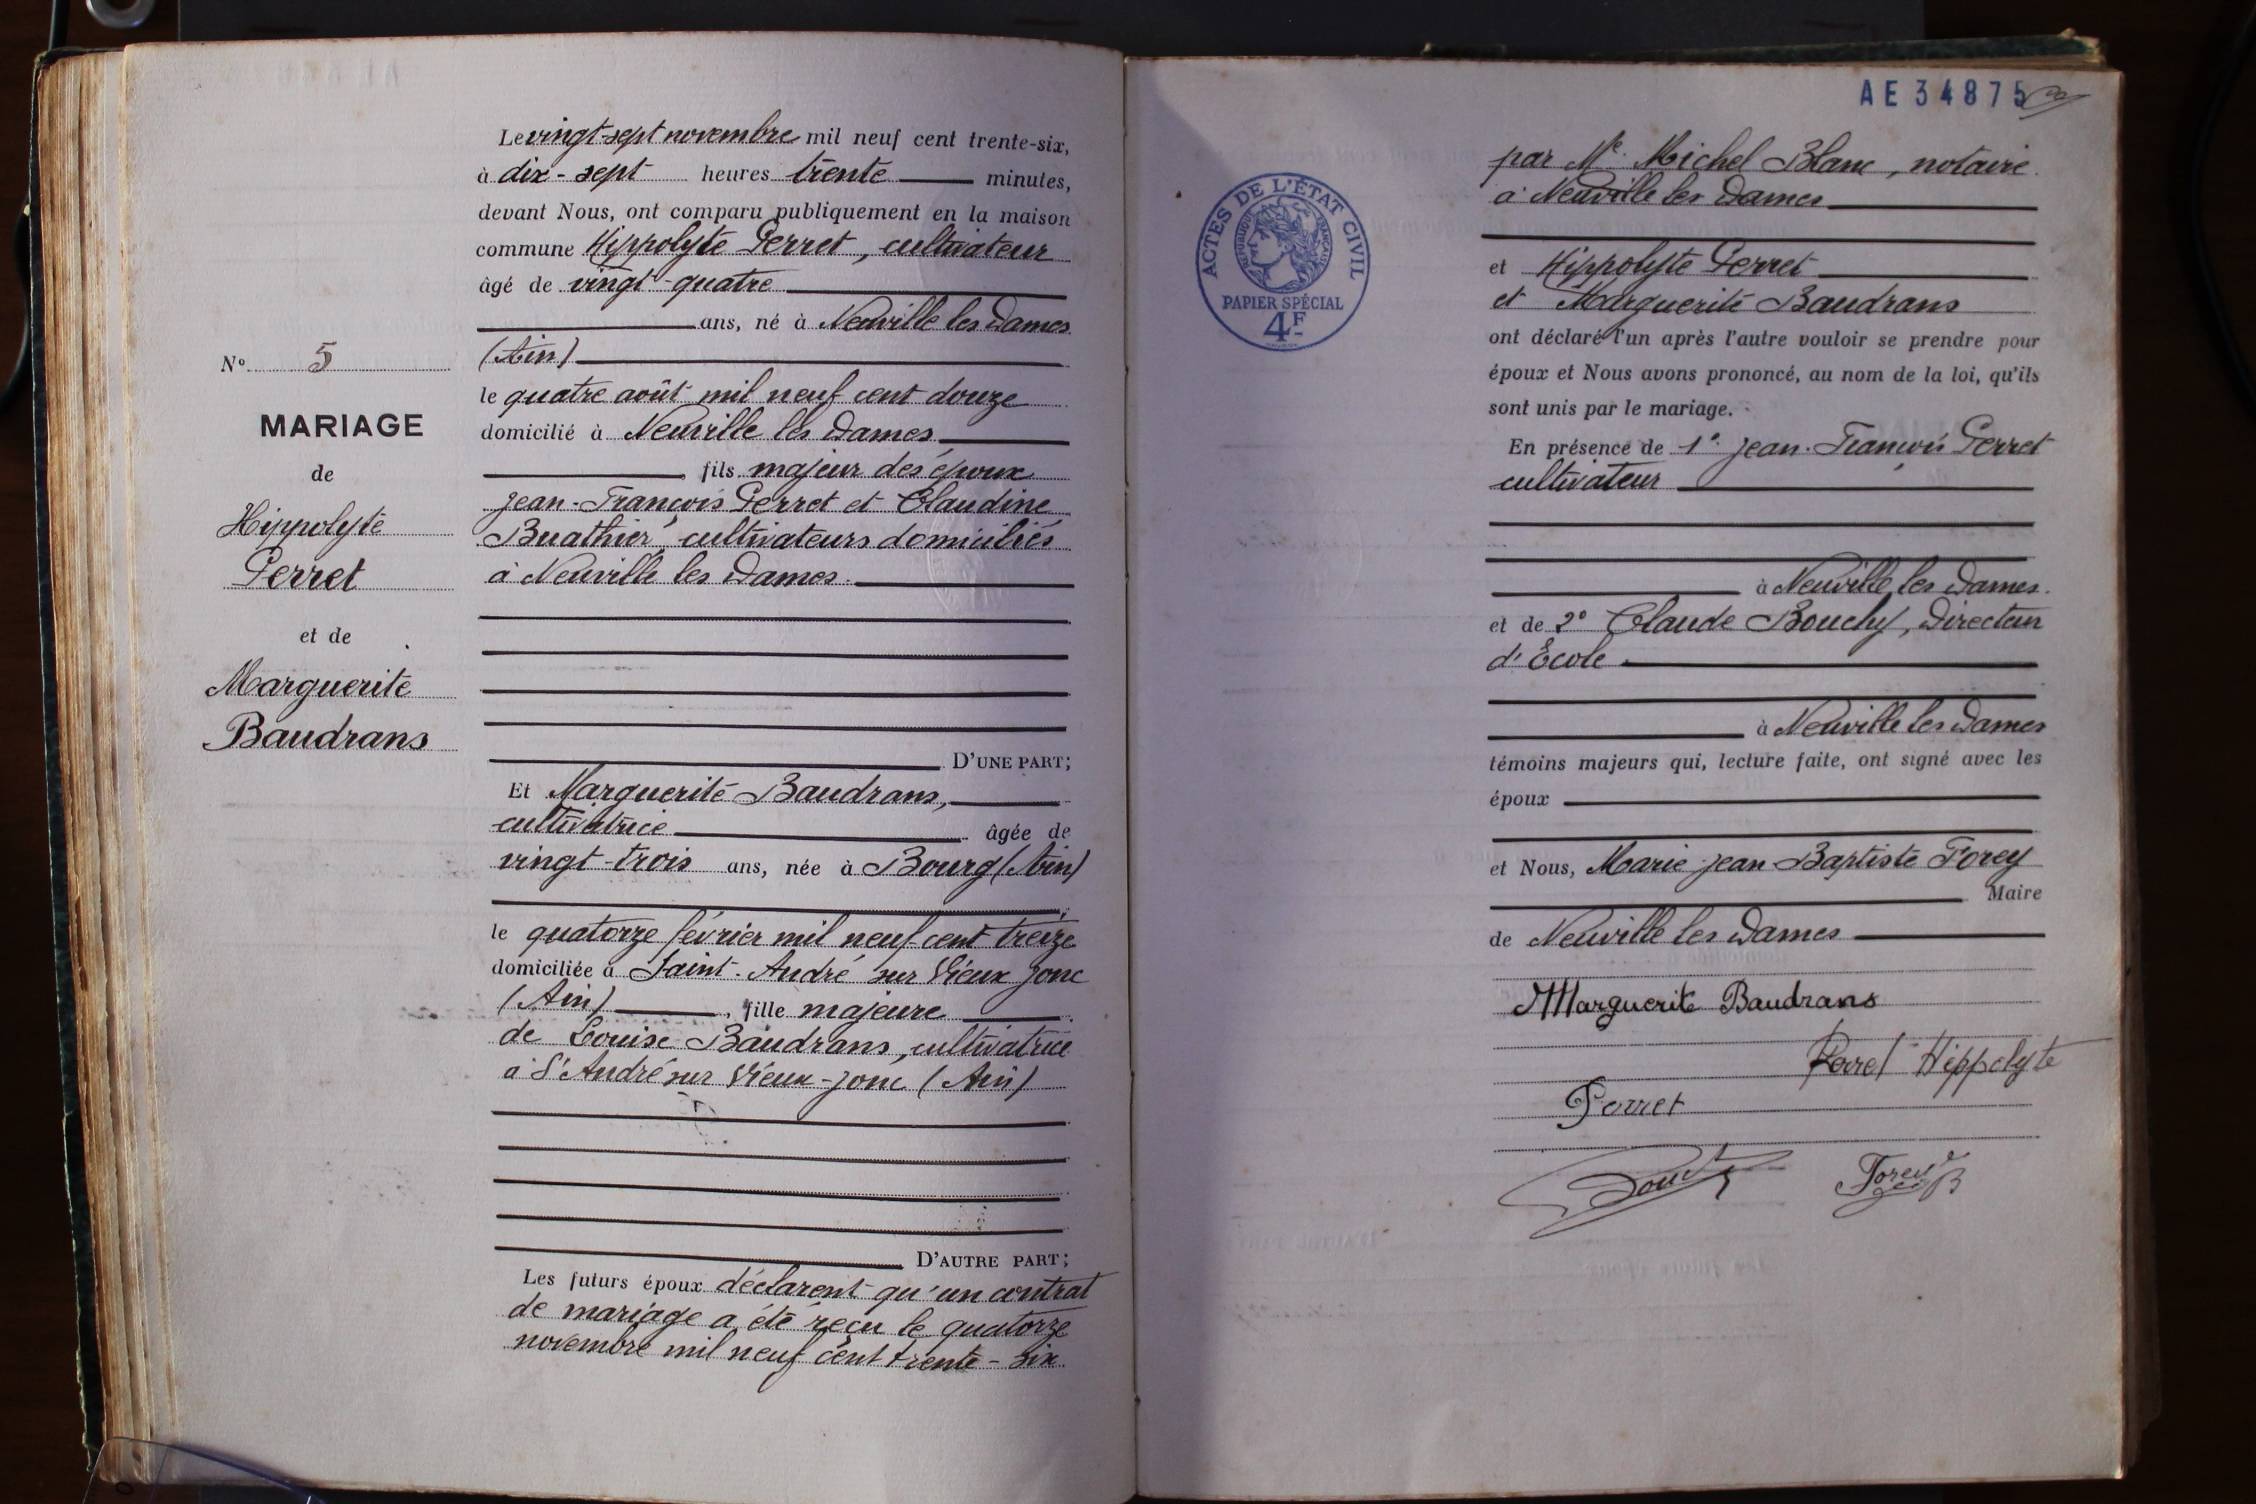 Le vingt-sept novembre mil neuf cent trente-six,
à dix-sept heures trente minutes,
devant Nous, ont comparu publiquement en la maison
commune Hippolyte Perret, cultivateur
âgé de vingt-quatre
ans, né à Neuville les Dames
(Ain)
le quatre août mil neuf cent douze
domicilié à Neuville les Dames
, fils majeur des époux
Jean-François Perret et Claudine
Buathier, cultivateurs domiciliés
à Neuville les Dames.
D'UNE PART;
N° 5
MARIAGE
de
Hippolyte
Perret
et de
Marguerite
Baudrans
Et Marguerite Baudrans,
cultivatrice âgée de
vingt-trois ans, née à Bourg (Ain)
le quatorze février mil neuf cent treize
domiciliée à Saint-André sur Vieux Jonc
(Ain), fille majeure
de Louise Baudrans, cultivatrice
à St André sur Vieux-Jonc (Ain)
D'AUTRE PART;
Les futurs époux déclarent qu'un contrat
de mariage a été reçu le quatorze
novembre mil neuf cent trente-six
AE34875
ACTES DE L'ÉTAT CIVIL
RÉPUBLIQUE FRANÇAISE
PAPIER SPÉCIAL
4F
par Me Michel Blanc, notaire
à Neuville les Dames
et Hippolyte Perret
et Marguerite Baudrans
ont déclaré l'un après l'autre vouloir se prendre pour
époux et Nous avons prononcé, au nom de la loi, qu'ils
sont unis par le mariage.
En présence de 1° Jean-François Perret
cultivateur
à Neuville les Dames.
et de 2° Claude Bouchy, Directeur
d'École
à Neuville les Dames
témoins majeurs qui, lecture faite, ont signé avec les
époux
et Nous, Marie Jean Baptiste Forey
Maire
de Neuville les Dames
Marguerite Baudrans
Perret Hippolyte
Perret
Forey